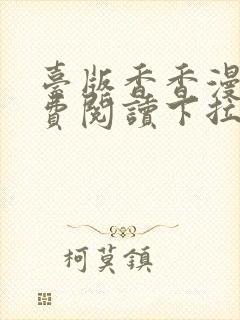 臺版香香漫
費閱讀下拉
柯莫鎮